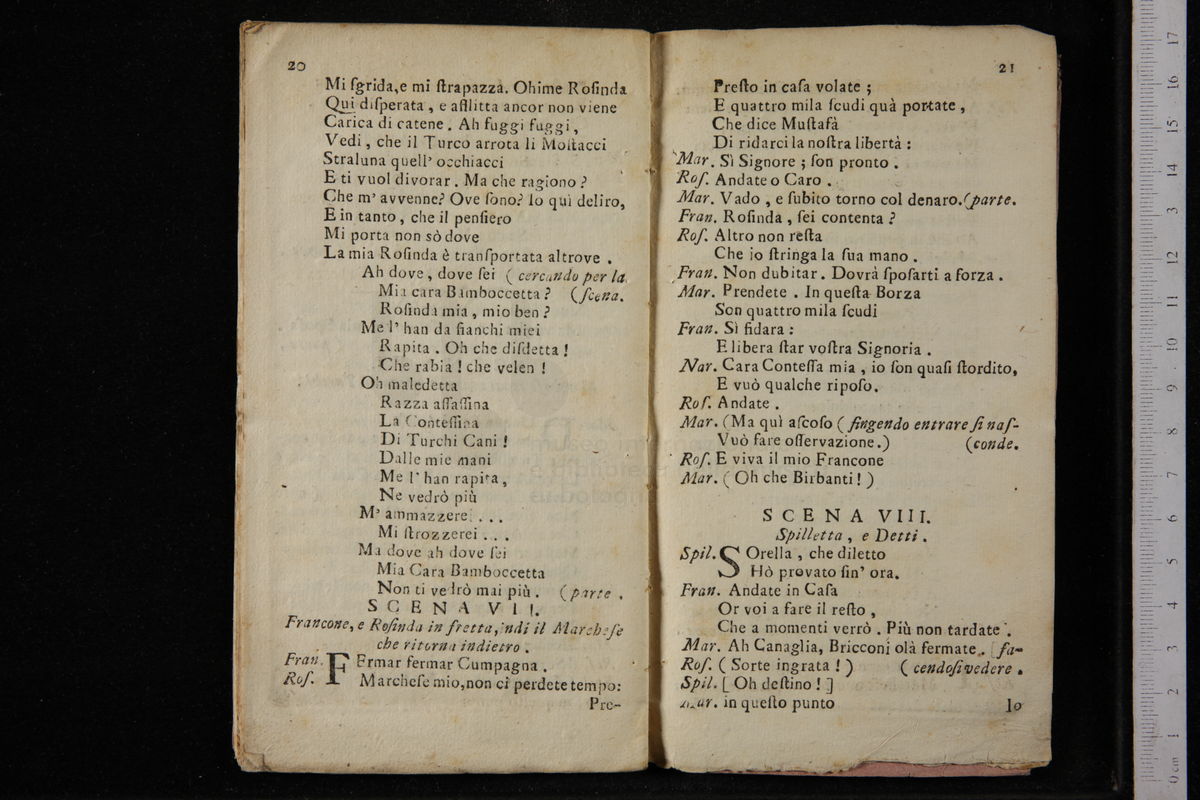 20
Mi ſgrida,e mi ſtrapazza. Ohime Roſinda
Qui diſperata , e afflitta ancor non viene
Carica di catene . Ah fuggi fuggi ,
Vedi , che il Turco arrota li Moſtacci
Straluna quell' occhiacci
E ti vuol divorar . Ma che ragiono ?
Che m' avvenne? Ove ſono? Io quì deliro,
E in tanto , che il penſiero
Mi porta non sò dove
La mia Roſinda è tranſportata altrove .
Ah dove , dove ſei ( cercando per la
Mia cara Bamboccetta ? (ſcena.
Roſinda mia , mio ben ?
Me l' han da fianchi miei
Rapita . Oh che diſdetta !
Che rabia ! che velen !
Oh maledetta
Razza aſſaſſina
La Conteſſina
Di Turchi Cani !
Dalle mie mani
Me l' han rapita ,
Ne vedrò più
M' ammazzerei . . .
Mi ſtrozzerei . . .
Ma dove ah dove ſei
Mia Cara Bamboccetta
Non ti vedrò mai più . (parte .
SCENA VII.
Francone, e Roſinda in fretta, indi il Marcheſe
che ritorna indietro .
Fran. FErmar fermar Cumpagna .
Roſ. Marcheſe mio,non ci perdete tempo:
Pre-
21
Preſto in caſa volate ;
E quattro mila ſcudi quà portate ,
Che dice Muſtafà
Di ridarci la noſtra libertà :
Mar. Sì Signore ; ſon pronto .
Roſ. Andate o Caro .
Mar. Vado , e ſubito torno col denaro.(parte.
Fran. Roſinda , ſei contenta ?
Roſ. Altro non reſta
Che io ſtringa la ſua mano .
Fran. Non dubitar . Dovrà ſpoſarti a forza .
Mar. Prendete . In queſta Borza
Son quattro mila ſcudi
Fran. Sì fidara :
E libera ſtar voſtra Signoria .
Nar. Cara Conteſſa mia , io ſon quaſi ſtordito,
E vuó qualche ripoſo.
Roſ. Andate .
Mar. (Ma quì aſcoſo ( fingendo entrare ſi naſ-
Vuò fare oſſervazione.) (conde.
Roſ. E viva il mio Francone
Mar. ( Oh che Birbanti ! )
SCENA VIII.
Spilletta , e Detti .
Spil. SOrella , che diletto
Hò provato ſin' ora.
Fran. Andate in Caſa
Or voi a fare il reſto ,
Che a momenti verrò . Più non tardate .
Mar. Ah Canaglia, Bricconi olà fermate . (fa-
Roſ. ( Sorte ingrata ! ) ( cendoſi vedere .
Spil. [ Oh deſtino ! ]
Mar. in queſto punto
Io
17
16
15
14
13
12
11
10
9
8
7
6
5
4
3
2
1
0 cm